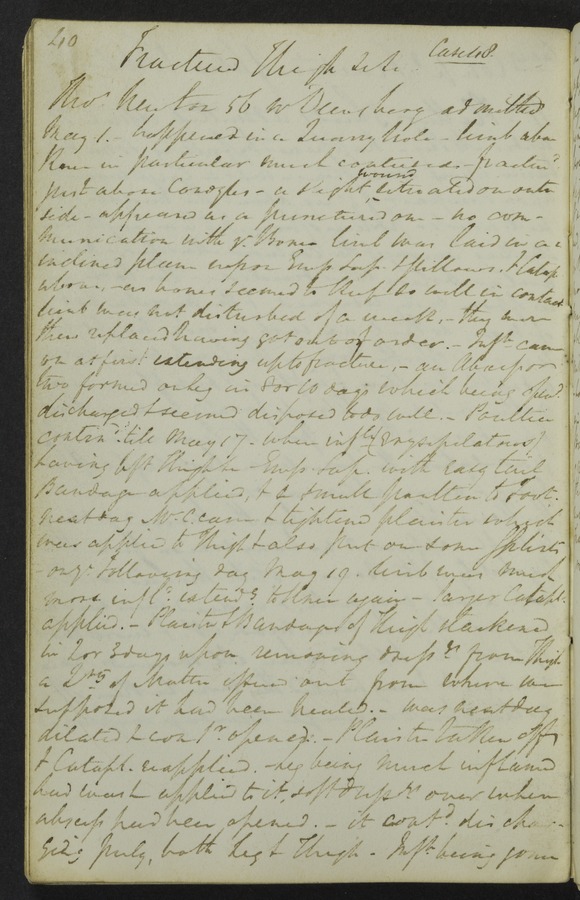 40
Fractured Thigh &c
Case 48.
Thos. Newton 56 admitted
May 1. - happened in a Quarry hole - limb
Knee in particular much contused - fractd.
just above Condyles - a slight wound situated on outer
side - appeared as a punctured one - no com-
munication with ye. Bone limb was laid on an
inclined plane upon Emp. Sap. & Pillows. & Catap.
above, - as bones seemed to keep so well in contact
limb was not disturbed of a week, - they were
then replaced having got out of order. - Infln. came
on at first extending up to fracture, - an Abscess or
two formed on leg in 8 or 10 days which being opend.
discharged & seemed disposed to do well. - Poultice
contind. till May 17 - when infln. (Erysipelatous)
having left thigh - Emp. Sap. with tail
Bandage applied, & a small poultice to
next day Mr. C. came & tightened plaister which
was applied to thigh & also put on some splints
- on ye. following day May 19. limb was much
more infld. extendg. to knee again - larger Catapl.
applied. - Plaister & Bandages of thigh slackened
in 2 or 3 days upon removing dressgs. from thigh
a of Matter oozed out from where we
supposed it had been healed. - was next day
dilated & opened. - Plaister taken off
& Catapl. reapplied. - leg being much inflamed
had wash applied to it, soft dressgs. over where
abscess had been opened. - it contd. dischar-
ging freely, both leg & thigh - Infln. being gone